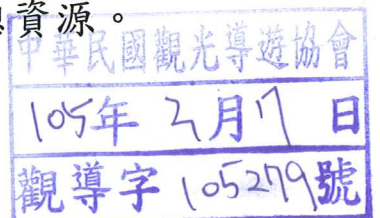 資源。
中華民國觀光導遊協會
105年 3月17日
觀導字 105279號